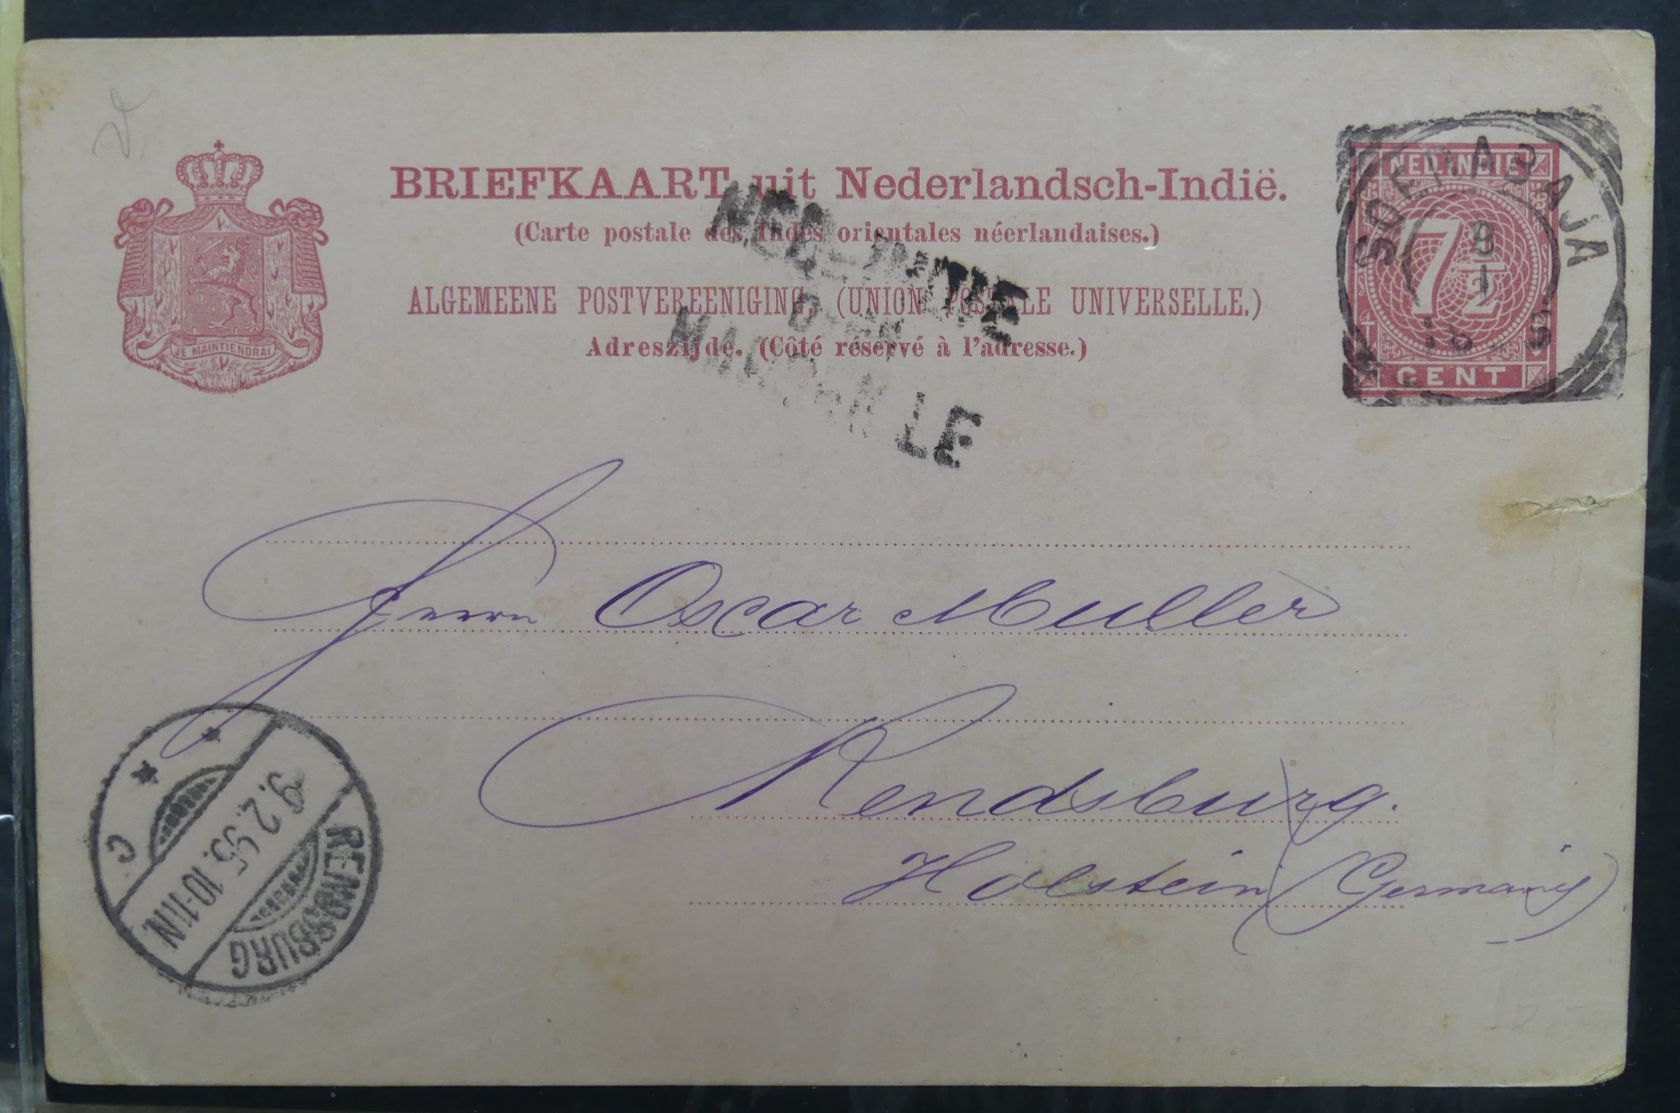 BRIEFKAART uit Nederlandsch-Indië.
(Carte postale des Indes orientales néerlandaises.)
ALGEMEENE POSTVEREENIGING. (UNION POSTALE UNIVERSELLE.)
Adreszijde. (Côté réservé à l'adresse.)
JE MAINTIENDRAI
NED-INDIE
MARSEILLE
NED. INDIE
7½
CENT
SOERABAJA
8
1
Herrn Oscar Muller
Rendsburg.
Holstein (Germany)
RENDSBURG
9.2.95.10-11N.
C